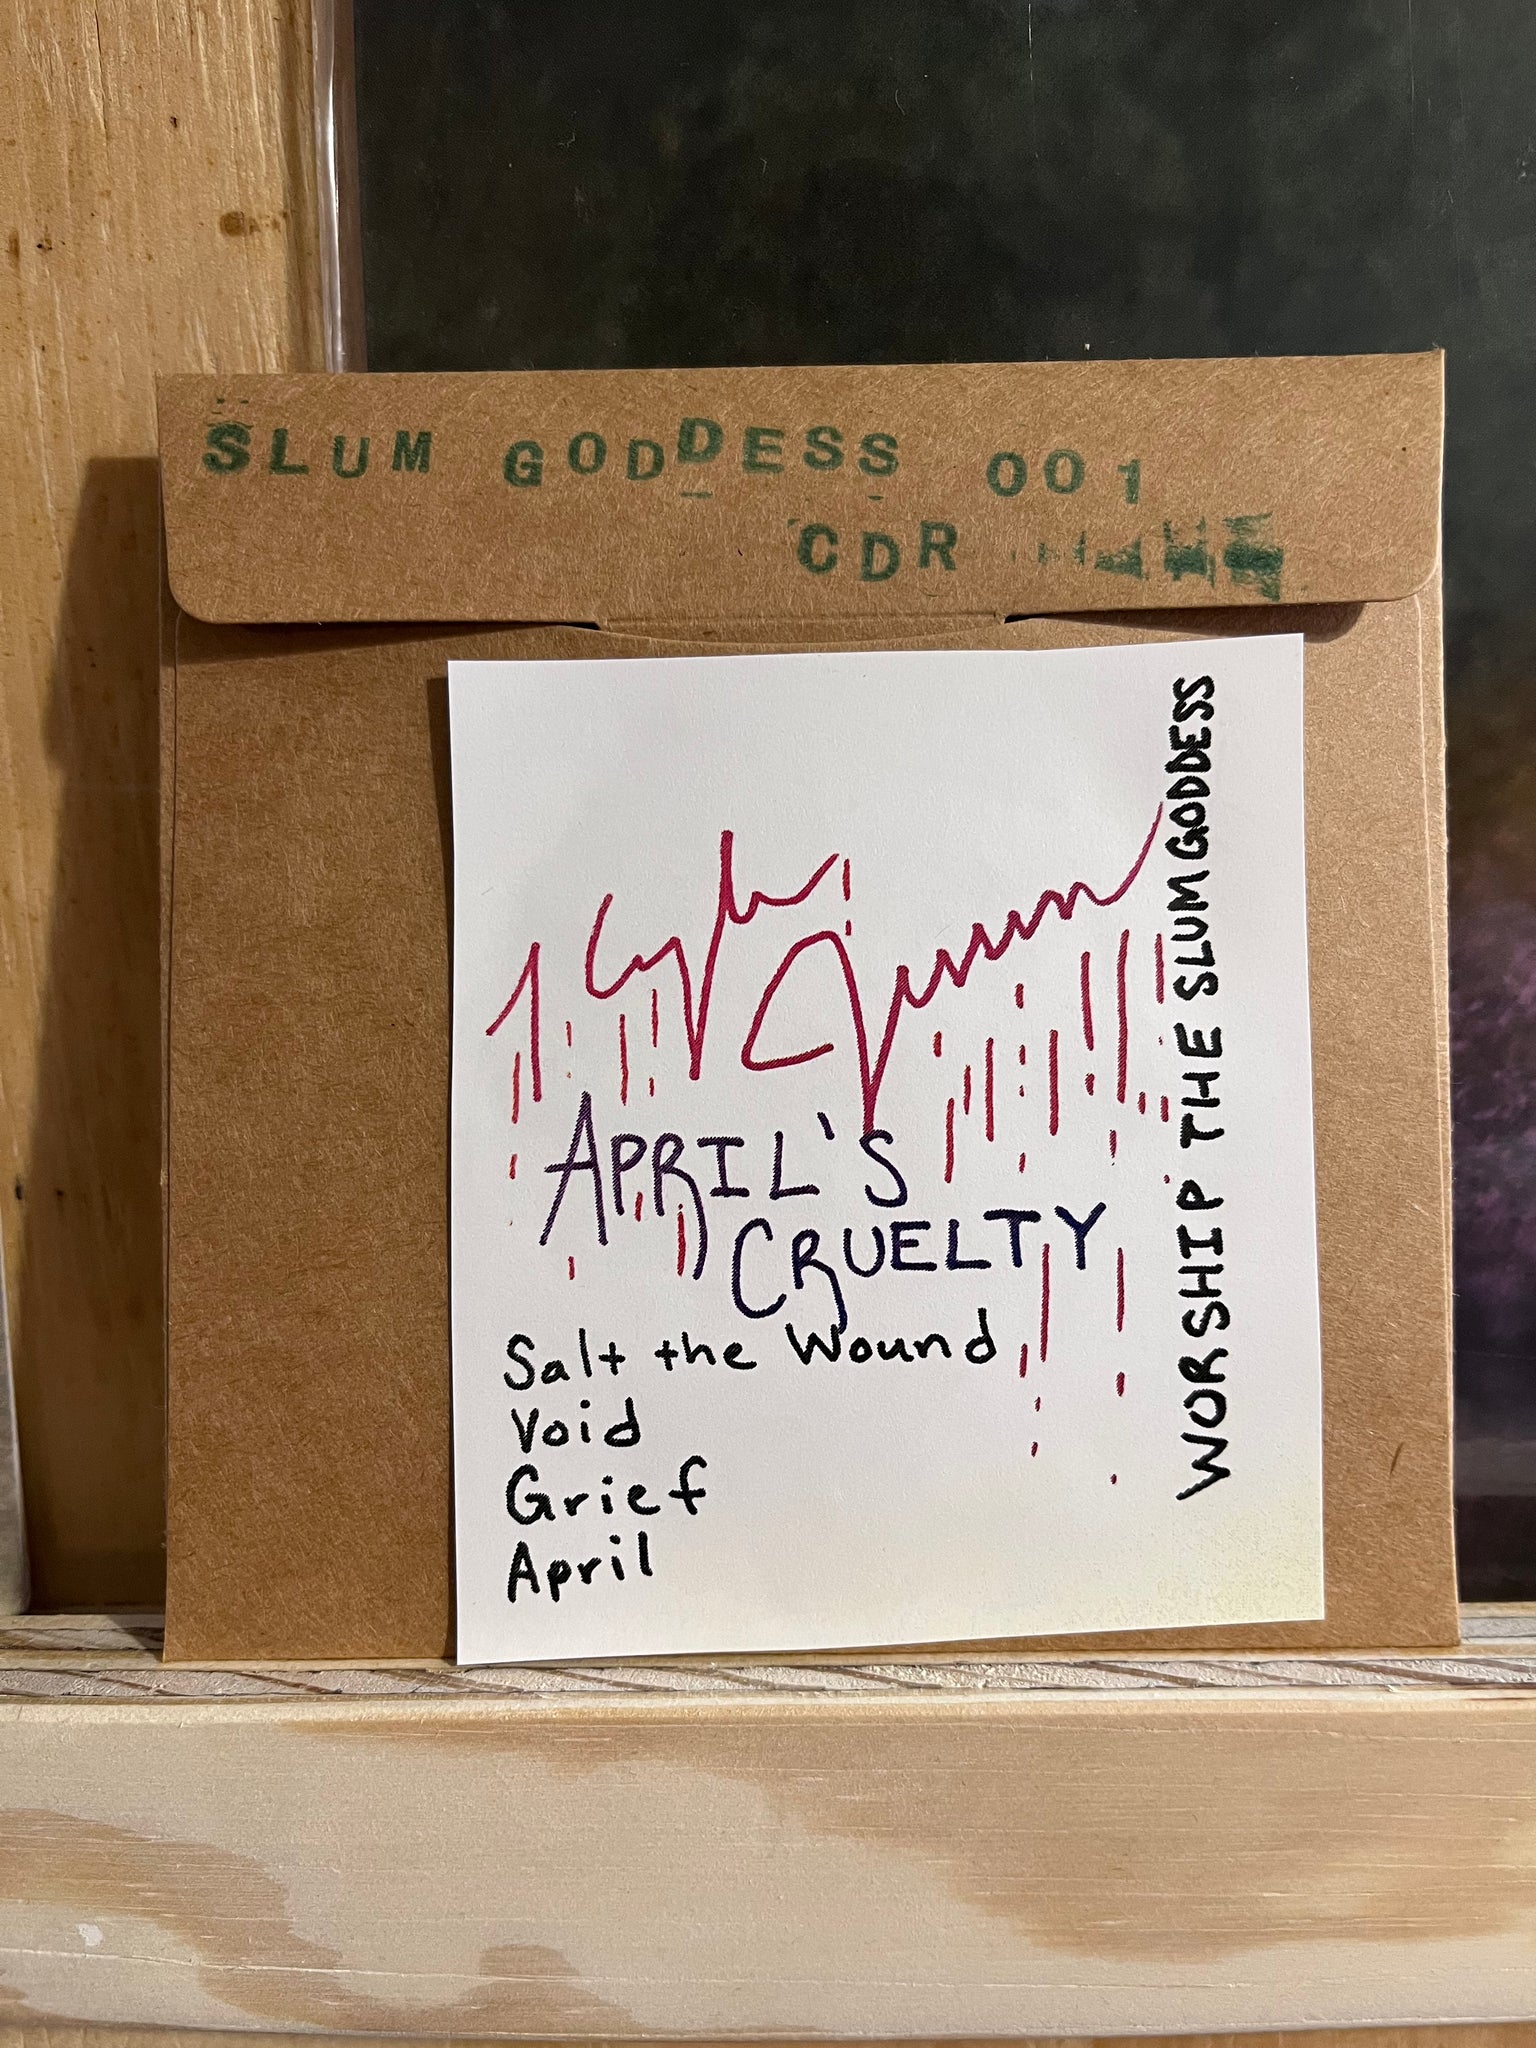 SLUM GODDESS 001
CDR
APRIL'S
CRUELTY
Salt the Wound
Void
Grief
April
WORSHIP THE SLUM GODDESS